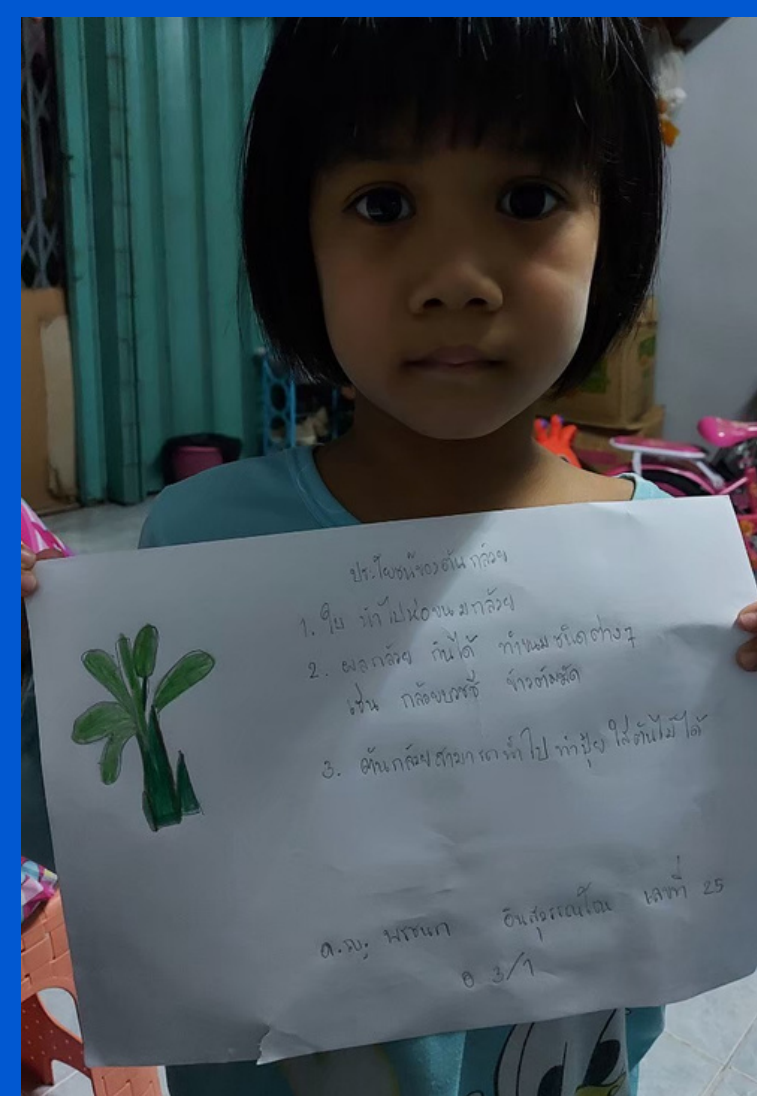 ประโยชน์ของต้นกล้วย
1. ใบ นำไปห่อขนมกล้วย
2. ผลกล้วย กินได้ ทำขนมชนิดต่างๆ
เช่น กล้วยบวชชี ข้าวต้มมัด
3. ต้นกล้วยสามารถนำไปทำปุ๋ย ใส่ต้นไม้ได้
ด.ญ. พรชนก เลขที่ 25
อ 3/1